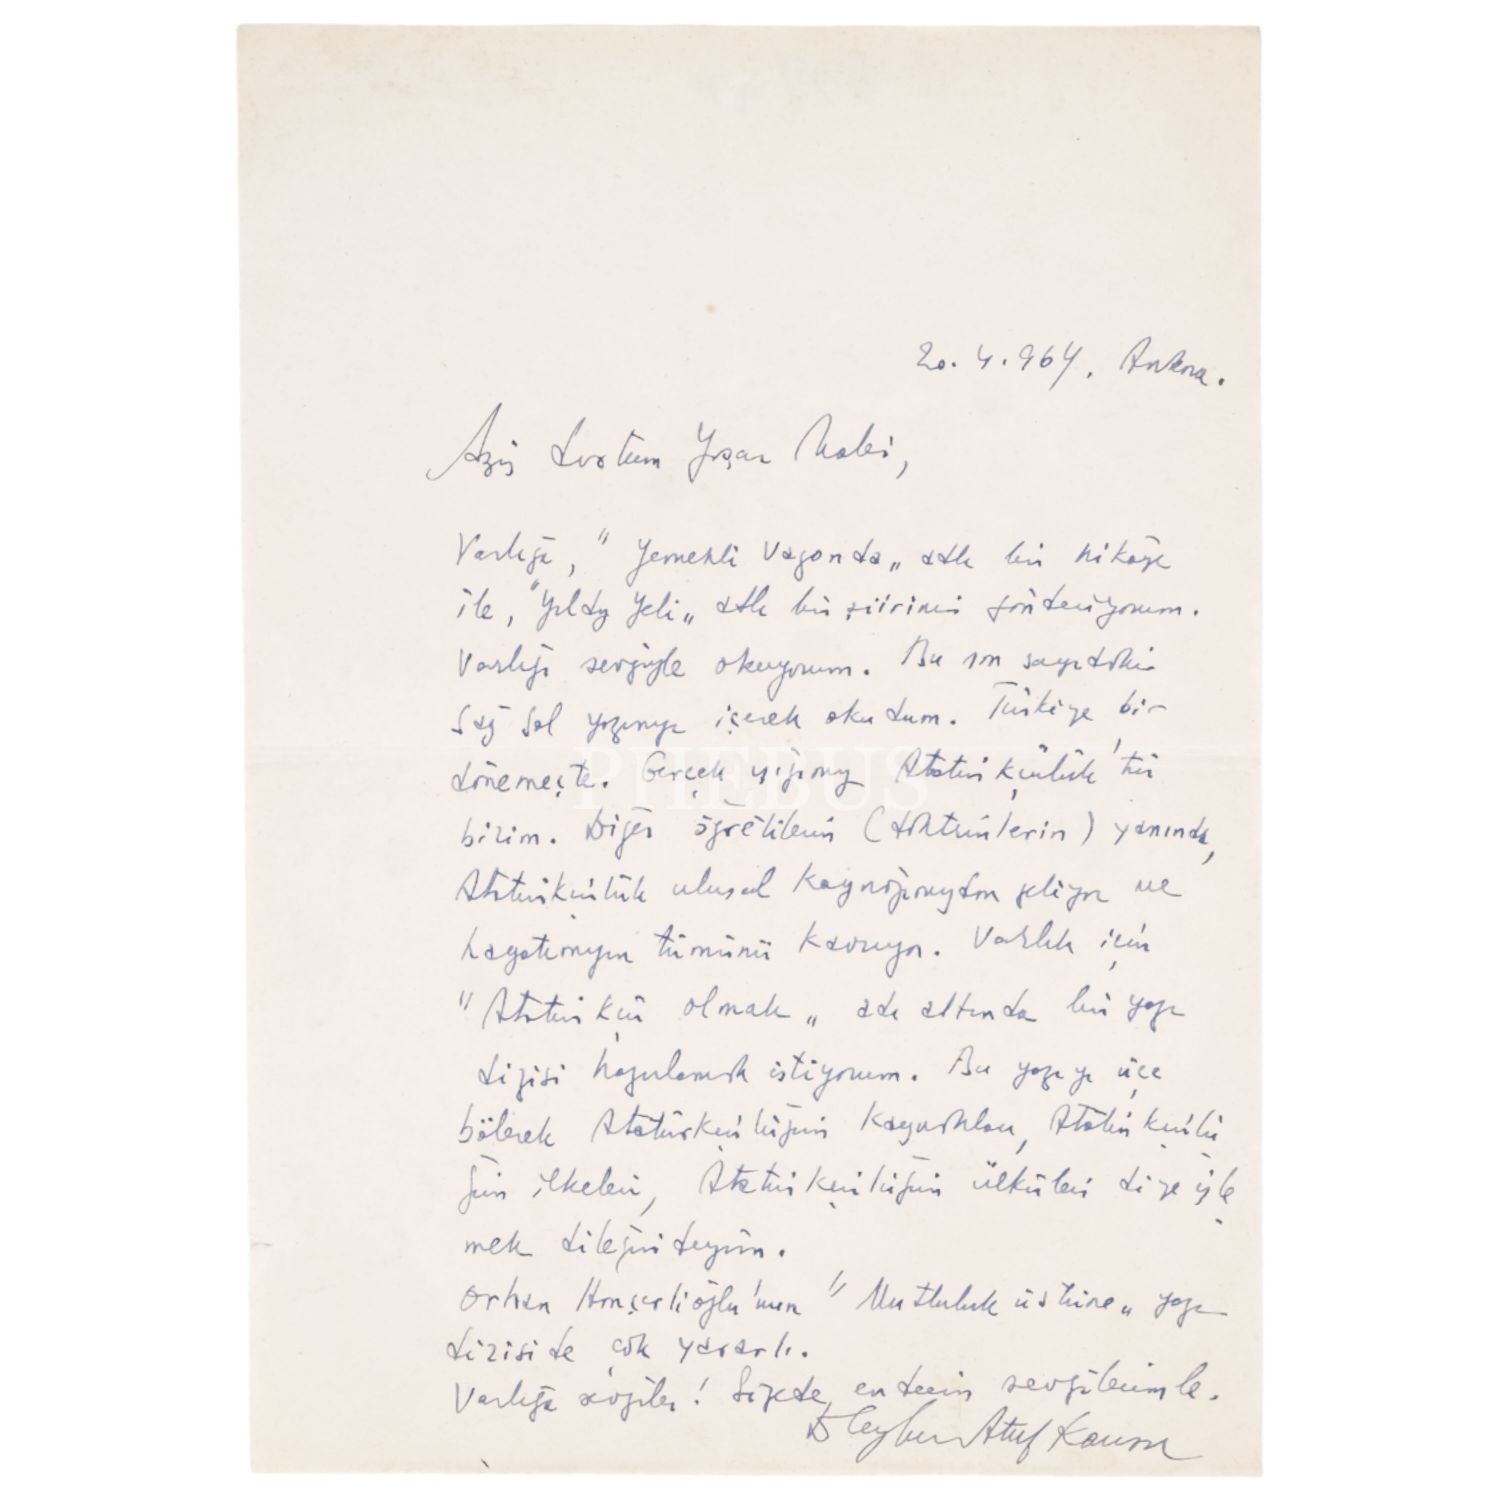 20.4.964. Ankara.
Aziz dostum Yaşar Nabi,
Varlığa, "Yemekli Vagonda" adlı bir hikâye
ile, "Yıldız Yeli" adlı bir şiirimi gönderiyorum.
Varlığı sevgiyle okuyorum. Bu son sayıdaki
Sağ Sol yazınızı içerek okudum. Türkiye bir
dönemeçte. Gerçek Atatürkçülük'tür
bizim. Diğer öğretilerin (doktrinlerin) yanında,
Atatürkçülük ulusal kaynağımızdan geliyor ve
hayatımızın tümünü kavrıyor. Varlık için
"Atatürkçü olmak" adı altında bir yazı
dizisi hazırlamak istiyorum. Bu yazıyı üçe
bölerek Atatürkçülüğün kaynakları, Atatürkçülü
ğün ilkeleri, Atatürkçülüğün ülküleri diye işle
mek dileğindeyim.
Orhan Hançerlioğlu'nun "Mutluluk üstüne" yazı
dizisi de çok yararlı.
Varlığa sevgiler! Size de en derin sevgilerimle.
Ceyhun Atuf Kansu
PHEBUS